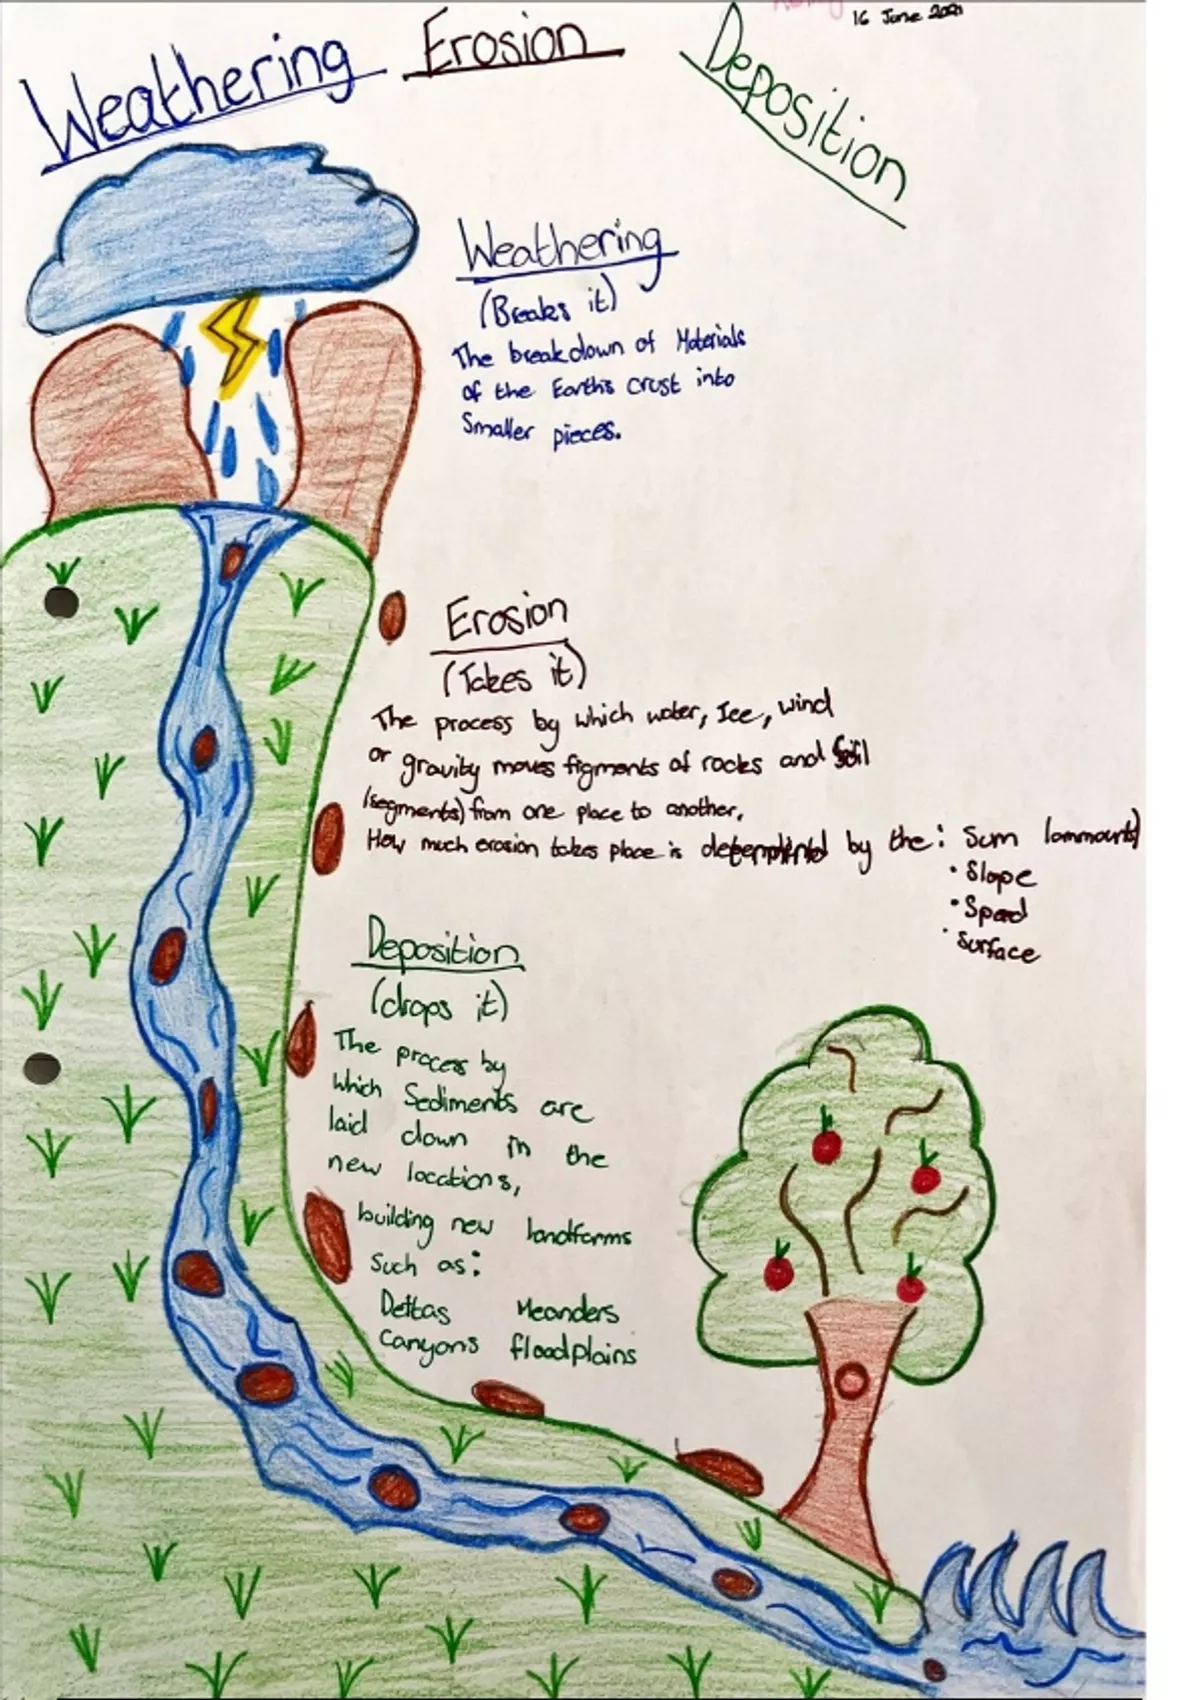 16 June 2021
Weathering Erosion Deposition
Weathering
(Breaks it)
The breakdown of Materials
of the Earth's crust into
Smaller pieces.
Erosion
(Takes it)
The process by which water, Ice, wind
or gravity moves figments of rocks and soil
(segments) from one place to another.
How much erosion takes place is by the: Sum (ammounts)
• Slope
• Speed
• Surface
Deposition
(drops it)
The process by
which Sediments are
laid down in the
new locations,
building new landforms
Such as:
Deltas Meanders
Canyons floodplains